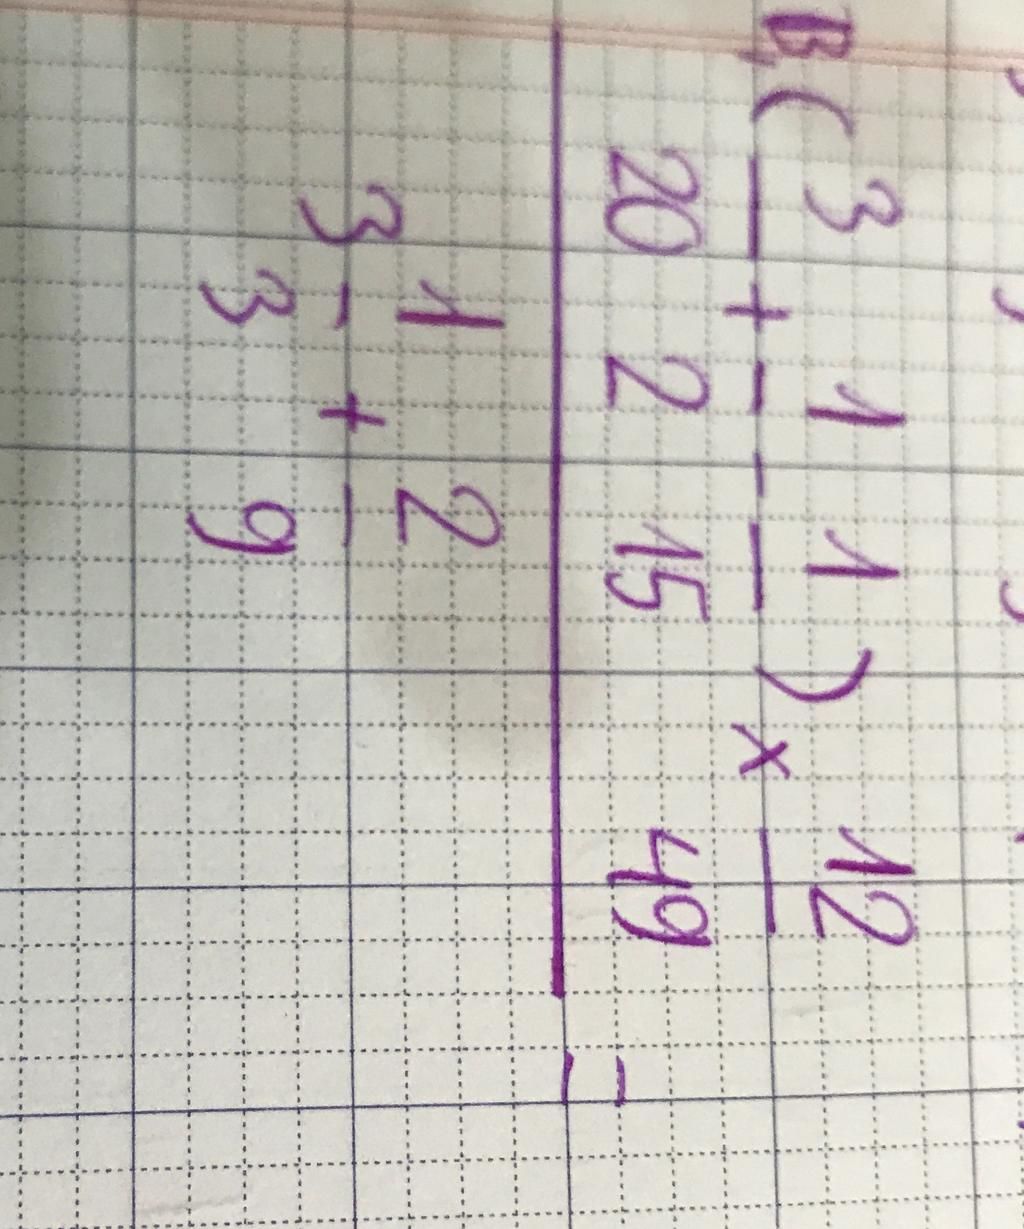 B, ( 3/20 + 1/2 - 1/15 ) x 12/49
=
3 1/3 + 2/9